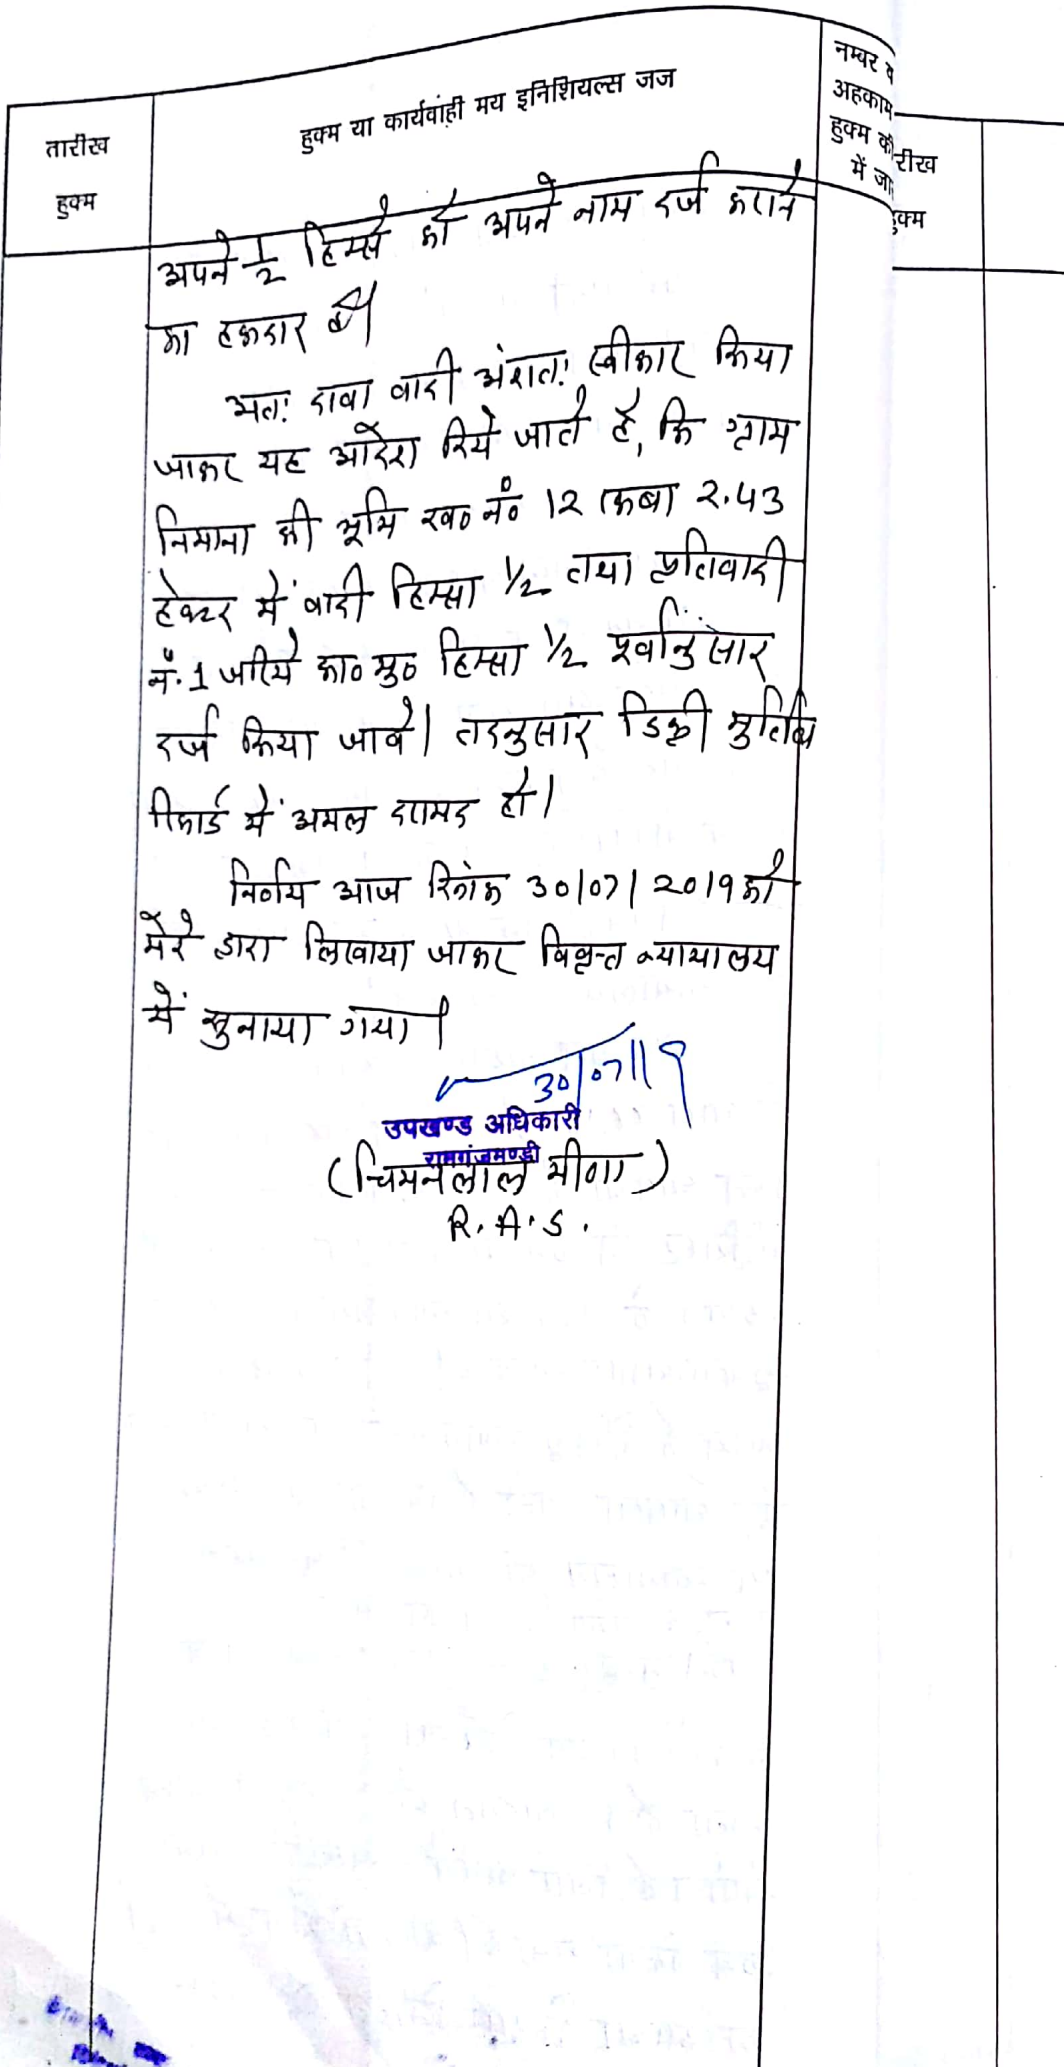 तारीख
हुक्म
हुक्म या कार्यवाही मय इनिशियल्स जज
नम्बर व
अहकाम
हुक्म की
में जा
रीख
हुक्म
अपने 1/2 हिस्से को अपने नाम दर्ज कराने
का हकदार है।
अतः दावा वादी अंशतः स्वीकार किया
जाकर यह आदेश दिये जाते है, कि ग्राम
निमाना की भूमि ख० नं० 12 रकबा 2.43
हेक्टर में वादी हिस्सा 1/2 तथा प्रतिवादी
नं. 1 जरिये का० मु० हिस्सा 1/2 पूर्वानुसार
दर्ज किया जावे। तदनुसार डिक्री मुर्तिब
रिकार्ड में अमल दरामद हो।
निर्णय आज दिनांक 30/07/2019 को
मेरे द्वारा लिखवाया जाकर विवृत्त न्यायालय
में सुनाया गया।
30/07/19
उपखण्ड अधिकारी
रामगंजमण्डी
(चिमनलाल मीणा)
R.A.S.